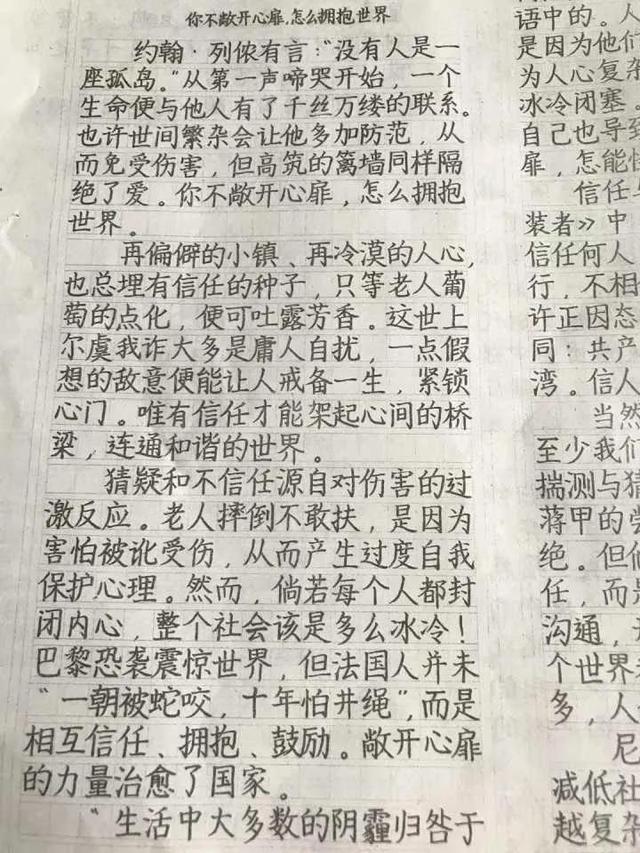 你不敞开心扉,怎么拥抱世界
约翰·列侬有言:"没有人是一
座孤岛。"从第一声啼哭开始,一个
生命便与他人有了千丝万缕的联系。
也许世间繁杂会让他多加防范,从
而免受伤害,但高筑的篱墙同样隔
绝了爱。你不敞开心扉,怎么拥抱
世界。
再偏僻的小镇、再冷漠的人心,
也总埋有信任的种子,只等老人葡
萄的点化,便可吐露芳香。这世上
尔虞我诈大多是庸人自扰,一点假
想的敌意便能让人戒备一生,紧锁
心门。唯有信任才能架起心间的桥
梁,连通和谐的世界。
猜疑和不信任源自对伤害的过
激反应。老人摔倒不敢扶,是因为
害怕被讹受伤,从而产生过度自我
保护心理。然而,倘若每个人都封
闭内心,整个社会该是多么冰冷!
巴黎恐袭震惊世界,但法国人并未
"一朝被蛇咬,十年怕井绳",而是
相互信任、拥抱、鼓励。敞开心扉
的力量治愈了国家。
"生活中大多数的阴霾归咎于
语中的。人
是因为他们
为人心复杂
冰冷闭塞
自己也导至
扉,怎能怪
信任
装者》中
信任何人
行,不相
许正因态
同:共产
湾。信人
当然
至少我们
揣测与猜
蒋甲的尝
绝。但他
任,而是
沟通,
个世界
多,人
尼
减低社
越复杂